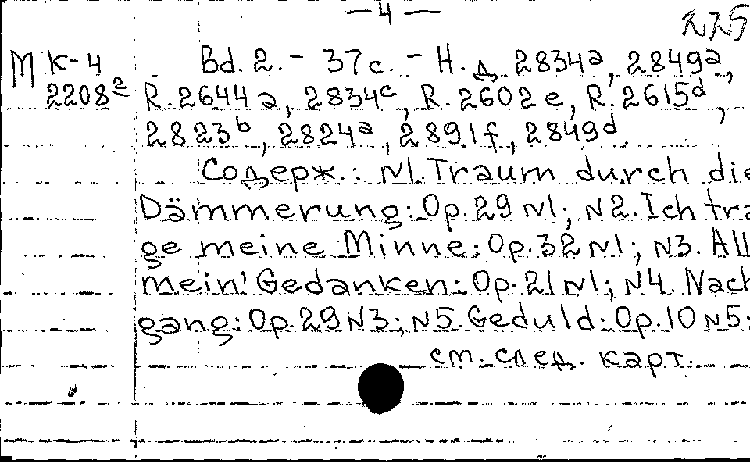 — 4 —
МК-4 Bd. 2. - 37с. - Н.д. 2834a, 2849a,
2208a R. 2644a, 2834c, R. 2602e, R. 2615d,
2823b, 2824a, 2891f, 2849d
Содерж.: N1. Traum durch die
Dämmerung: Op. 29 N1; N2. Ich tra
ge meine Minne: Op. 32 N1; N3. All
mein' Gedanken: Op. 21 N1; N4. Nach
gang: Op. 29 N3; N5. Geduld: Op. 10 N5;
см. след. карт.